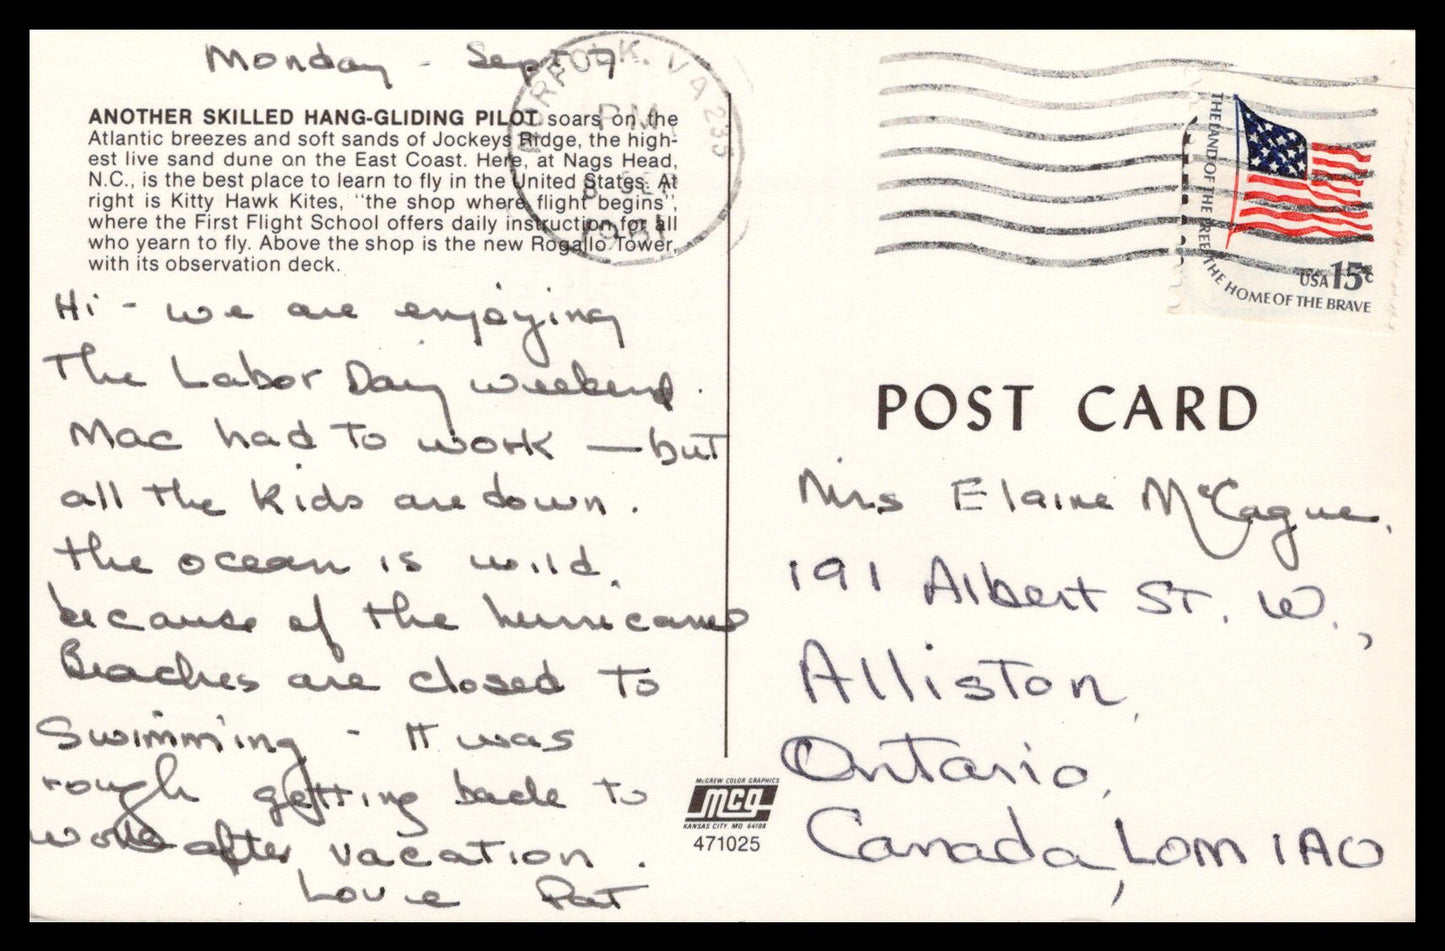 Monday - Sept 7
ANOTHER SKILLED HANG-GLIDING PILOT soars on the
Atlantic breezes and soft sands of Jockeys Ridge, the high-
est live sand dune on the East Coast. Here, at Nags Head,
N.C., is the best place to learn to fly in the United States. At
right is Kitty Hawk Kites, "the shop where flight begins",
where the First Flight School offers daily instruction for all
who yearn to fly. Above the shop is the new Rogallo Tower,
with its observation deck.
Hi - we are enjoying
The Labor Day weekend.
Mac had to work — but
all the kids are down.
The ocean is wild,
because of the hurricanes
Beaches are closed to
Swimming - It was
rough getting back to
work after vacation.
Love Pat
NORFOLK, VA 235
PM
8 SEP
1981
THE LAND OF THE FREE THE HOME OF THE BRAVE
USA 15c
POST CARD
Mrs Elaine McCague,
191 Albert St. W.,
Alliston,
Ontario,
Canada, LOM 1AO
McGREW COLOR GRAPHICS
mcg
KANSAS CITY, MO 64108
471025